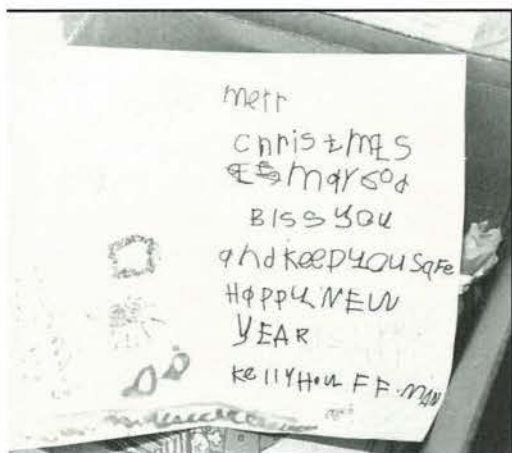 merr
christmes
may God
Biss you
and keep you safe
Happy NEW
YEAR
Kelly Houff.man